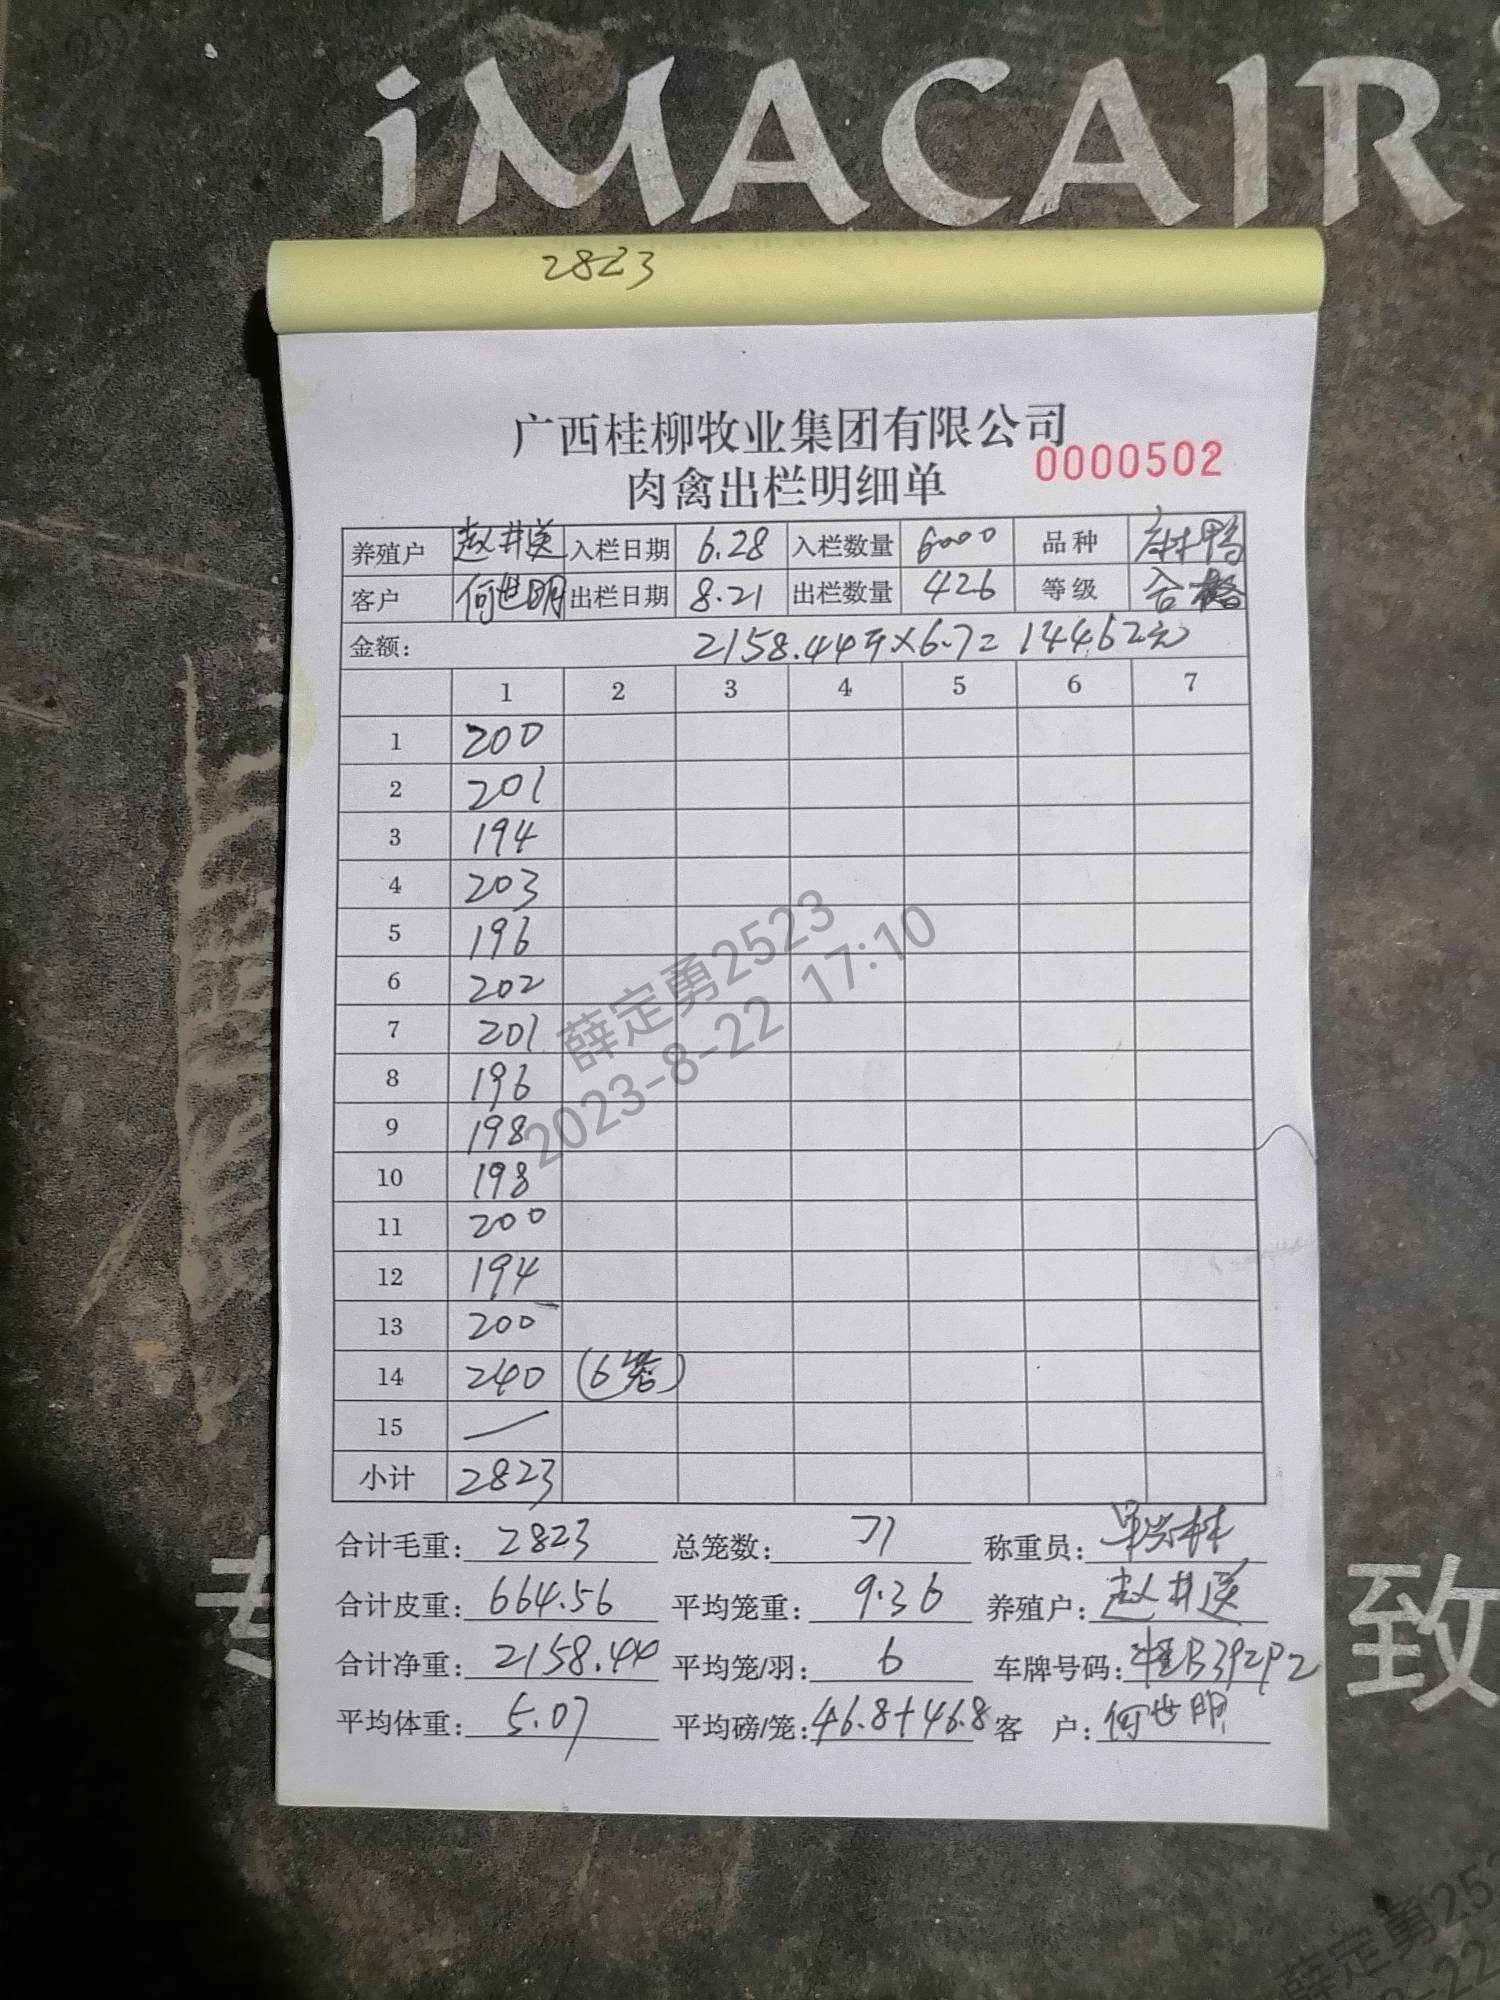 iMACAIR
2823
广西桂柳牧业集团有限公司
肉禽出栏明细单 0000502
养殖户 赵井送 入栏日期 6.28 入栏数量 6000 品种 麻鸭
客户 何世明 出栏日期 8.21 出栏数量 426 等级 合格
金额: 2158.44斤×6.7=14462元
1 2 3 4 5 6 7
1 200
2 201
3 194
4 203
5 196
6 202
7 201
8 196
9 198
10 198
11 200
12 194
13 200
14 240 (6笼)
15 —
小计 2823
合计毛重: 2823 总笼数: 71 称重员:
合计皮重: 664.56 平均笼重: 9.36 养殖户: 赵井送
合计净重: 2158.44 平均笼/羽: 6 车牌号码: 桂B392P2
平均体重: 5.07 平均磅/笼: 46.8+46.8 客 户: 何世明
薛定勇2523
2023-8-22 17:10
致
薛定勇252